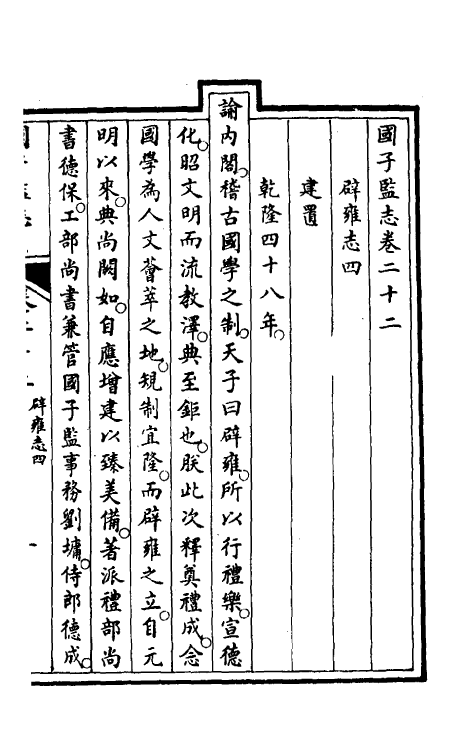 國子監志卷二十二
辟雍志四
建置
乾隆四十八年。
諭內閣。稽古國學之制。天子曰辟雍。所以行禮樂。宣德
化。昭文明而流教澤。典至鉅也。朕此次釋奠禮成。念
國學為人文薈萃之地。規制宜隆。而辟雍之立。自元
明以來。典尚闕如。自應增建以臻美備。著派禮部尚
書德保。工部尚書兼管國子監事務劉墉。侍郎德成。
辟雍志四
一